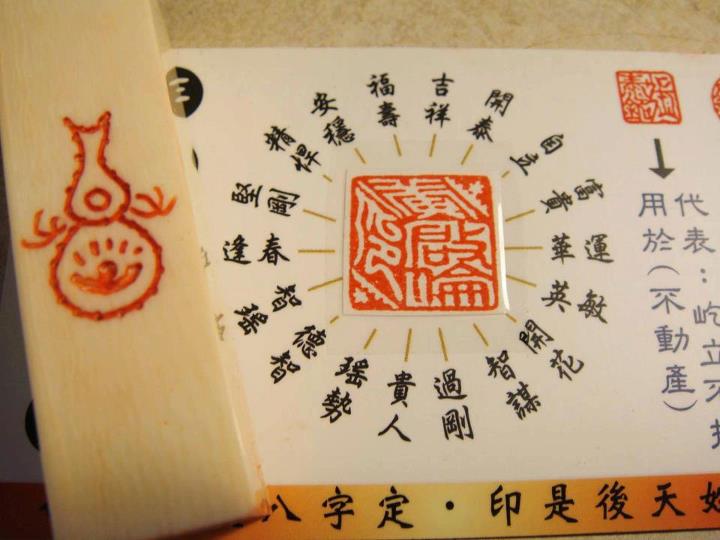 福壽
吉祥
開泰
自立
富貴
華運
英敏
開花
智謀
過剛
貴人
德智
逢春
堅剛
精悍
安穩
代表：屹立不
用於（不動產）
八字定・印是後天